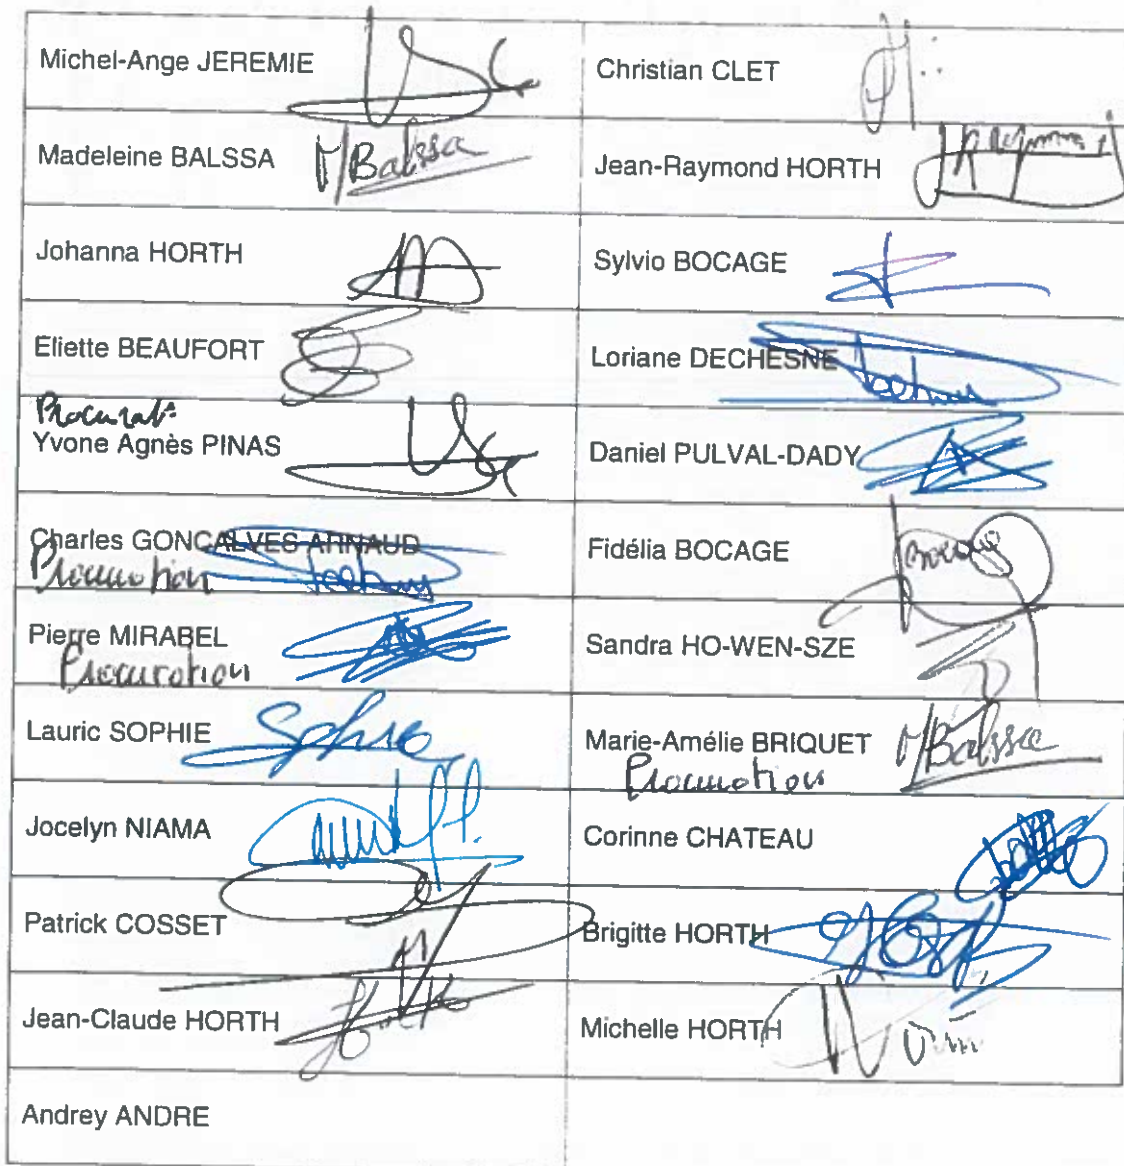 Michel-Ange JEREMIE
Christian CLET
Madeleine BALSSA
M/Balssa
Jean-Raymond HORTH
Johanna HORTH
Sylvio BOCAGE
Eliette BEAUFORT
Loriane DECHESNE
Yvone Agnès PINAS
Daniel PULVAL-DADY
Charles GONCALVES ARNAUD
Procuration
Fidélia BOCAGE
Pierre MIRABEL
Procuration
Sandra HO-WEN-SZE
Lauric SOPHIE
Sophie
Marie-Amélie BRIQUET
M/Balssa
Procuration
Jocelyn NIAMA
Corinne CHATEAU
Patrick COSSET
Brigitte HORTH
Jean-Claude HORTH
Michelle HORTH
Andrey ANDRE